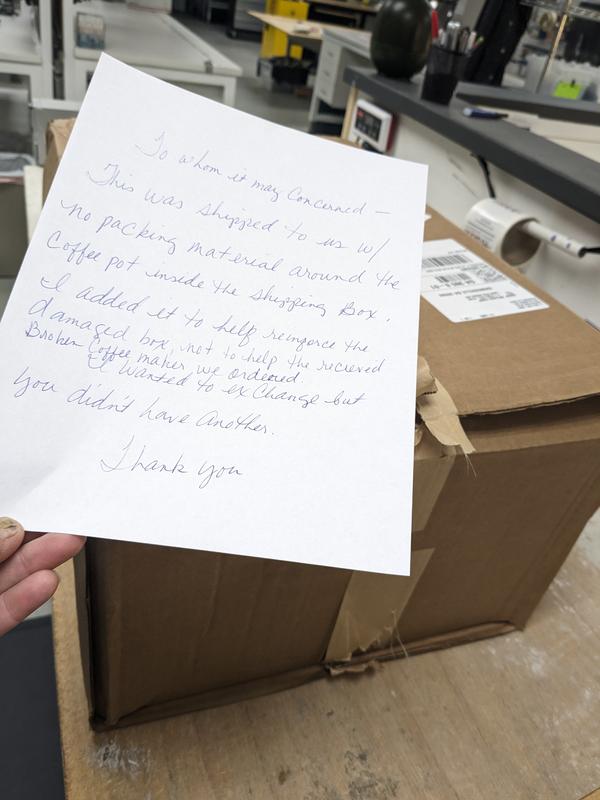 To whom it may Concerned —
This was shipped to us w/
no packing material around the
Coffee pot inside the shipping Box.
I added it to help reinforce the
damaged box, not to help the recieved
Broken Coffee maker we ordered.
I wanted to exchange but
you didn't have Another.
Thank you